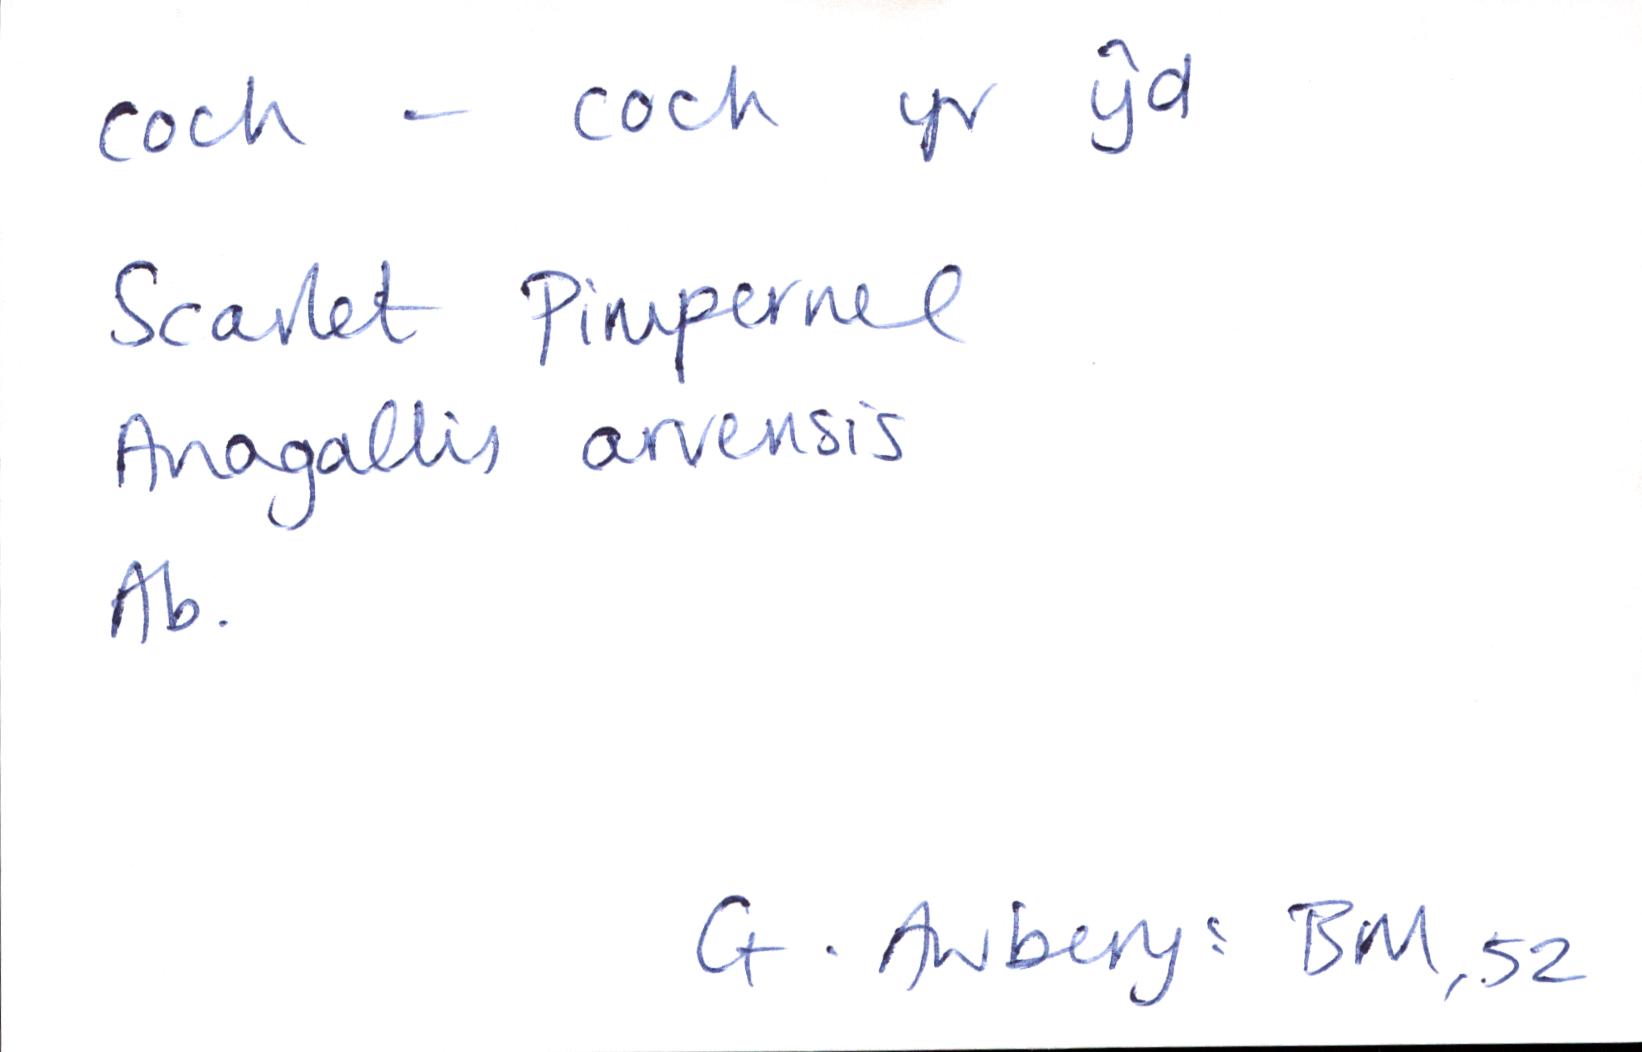 coch - coch yr ŷd
Scarlet Pimpernel
Anagallis arvensis
Ab.
G. Awbery: BM, 52